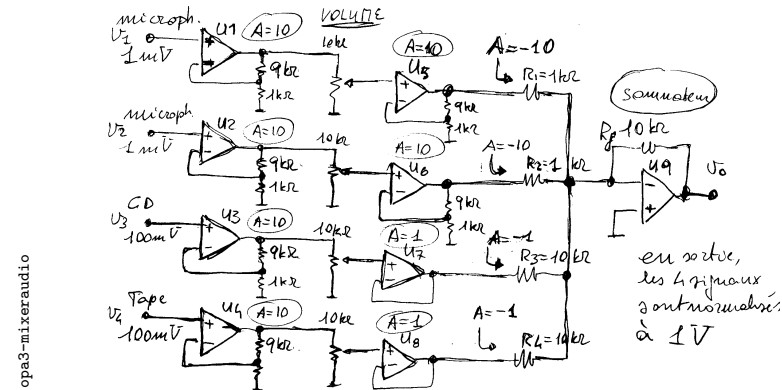 microph.
V1
1mV
U1
A=10
9kΩ
1kΩ
VOLUME
10kΩ
A=10
U5
9kΩ
1kΩ
A=-10
R1=1kΩ
microph.
V2
1mV
U2
A=10
9kΩ
1kΩ
10kΩ
A=10
U6
9kΩ
1kΩ
A=-10
R2=1kΩ
CD
V3
100mV
U3
A=10
9kΩ
1kΩ
10kΩ
A=1
U7
A=-1
R3=10kΩ
Tape
V4
100mV
U4
A=10
9kΩ
10kΩ
A=1
U8
A=-1
R4=10kΩ
sommateur
Rf 10kΩ
U9
Vo
en sortie,
les 4 signaux
sont normalisés
à 1V
opa3-mixeraudio